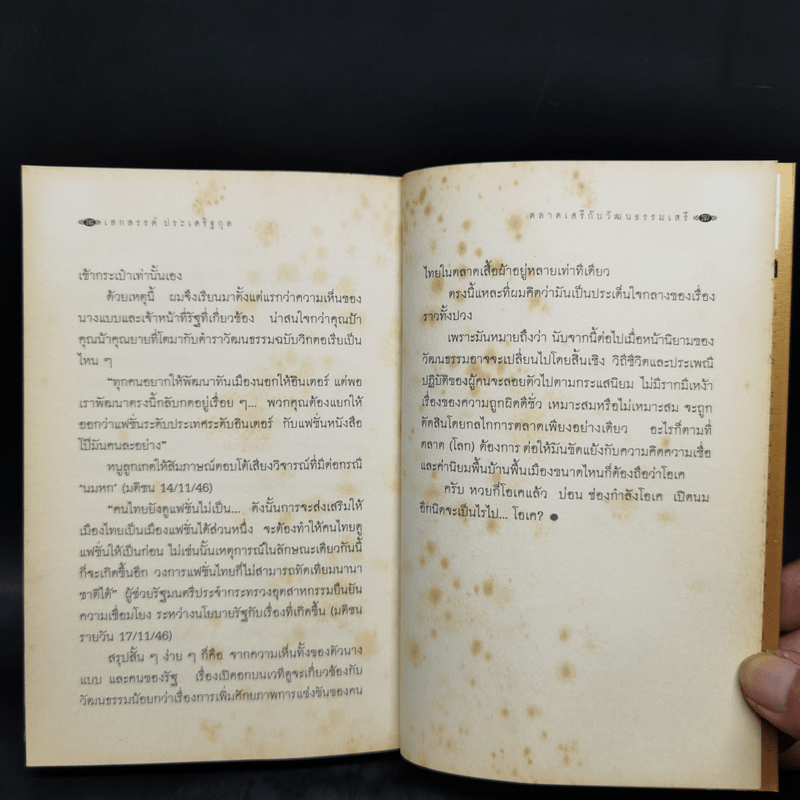 เสกสรรค์ ประเสริฐกุล
เข้ากระเป๋าเท่านั้นเอง
ด้วยเหตุนี้ ผมจึงเรียนมาตั้งแต่แรกว่าความเห็นของ
นางแบบและเจ้าหน้าที่รัฐที่เกี่ยวข้อง น่าสนใจกว่าคุณป้า
คุณน้าคุณยายที่โตมากับตำราวัฒนธรรมฉบับวิกตอเรียเป็น
ไหน ๆ
"ทุกคนอยากให้พัฒนาทันเมืองนอกให้อินเตอร์ แต่พอ
เราพัฒนาตรงนี้กลับกดอยู่เรื่อย ๆ... พวกคุณต้องแยกให้
ออกว่าแฟชั่นระดับประเทศระดับอินเตอร์ กับแฟชั่นหนังสือ
โป๊มันคนละอย่าง"
หนูลูกเกดให้สัมภาษณ์ตอบโต้เสียงวิจารณ์ที่มีต่อกรณี
'นมหก' (มติชน 14/11/46)
"คนไทยยังดูแฟชั่นไม่เป็น... ดังนั้นการจะส่งเสริมให้
เมืองไทยเป็นเมืองแฟชั่นได้ส่วนหนึ่ง จะต้องทำให้คนไทยดู
แฟชั่นให้เป็นก่อน ไม่เช่นนั้นเหตุการณ์ในลักษณะเดียวกันนี้
ก็จะเกิดขึ้นอีก วงการแฟชั่นไทยก็ไม่สามารถทัดเทียมนานา
ชาติได้" ผู้ช่วยรัฐมนตรีประจำกระทรวงอุตสาหกรรมยืนยัน
ความเชื่อมโยง ระหว่างนโยบายรัฐกับเรื่องที่เกิดขึ้น (มติชน
รายวัน 17/11/46)
สรุปสั้น ๆ ง่าย ๆ ก็คือ จากความเห็นทั้งของตัวนาง
แบบ และคนของรัฐ เรื่องเปิดอกบนเวทีดูจะเกี่ยวข้องกับ
วัฒนธรรมน้อยกว่าเรื่องการเพิ่มศักยภาพการแข่งขันของคน
ตลาดเสรีกับวัฒนธรรมเสรี
ไทยในตลาดเสื้อผ้าอยู่หลายเท่าทีเดียว
ตรงนี้แหละที่ผมคิดว่ามันเป็นประเด็นใจกลางของเรื่อง
ราวทั้งปวง
เพราะมันหมายถึงว่า นับจากนี้ต่อไปเมื่อหน้านิยามของ
วัฒนธรรมอาจจะเปลี่ยนไปโดยสิ้นเชิง วิถีชีวิตและประเพณี
ปฏิบัติของผู้คนจะลอยตัวไปตามกระแสนิยม ไม่มีรากมีเหง้า
เรื่องของความถูกผิดดีชั่ว เหมาะสมหรือไม่เหมาะสม จะถูก
ตัดสินโดยกลไกการตลาดเพียงอย่างเดียว อะไรก็ตามที่
ตลาด (โลก) ต้องการ ต่อให้มันขัดแย้งกับความคิดความเชื่อ
และค่านิยมพื้นบ้านพื้นเมืองขนาดไหนก็ต้องถือว่าโอเค
ครับ หวยก็โอเคแล้ว บ่อน ซ่องกำลังโอเค เปิดนม
อีกนิดจะเป็นไรไป... โอเค? ●